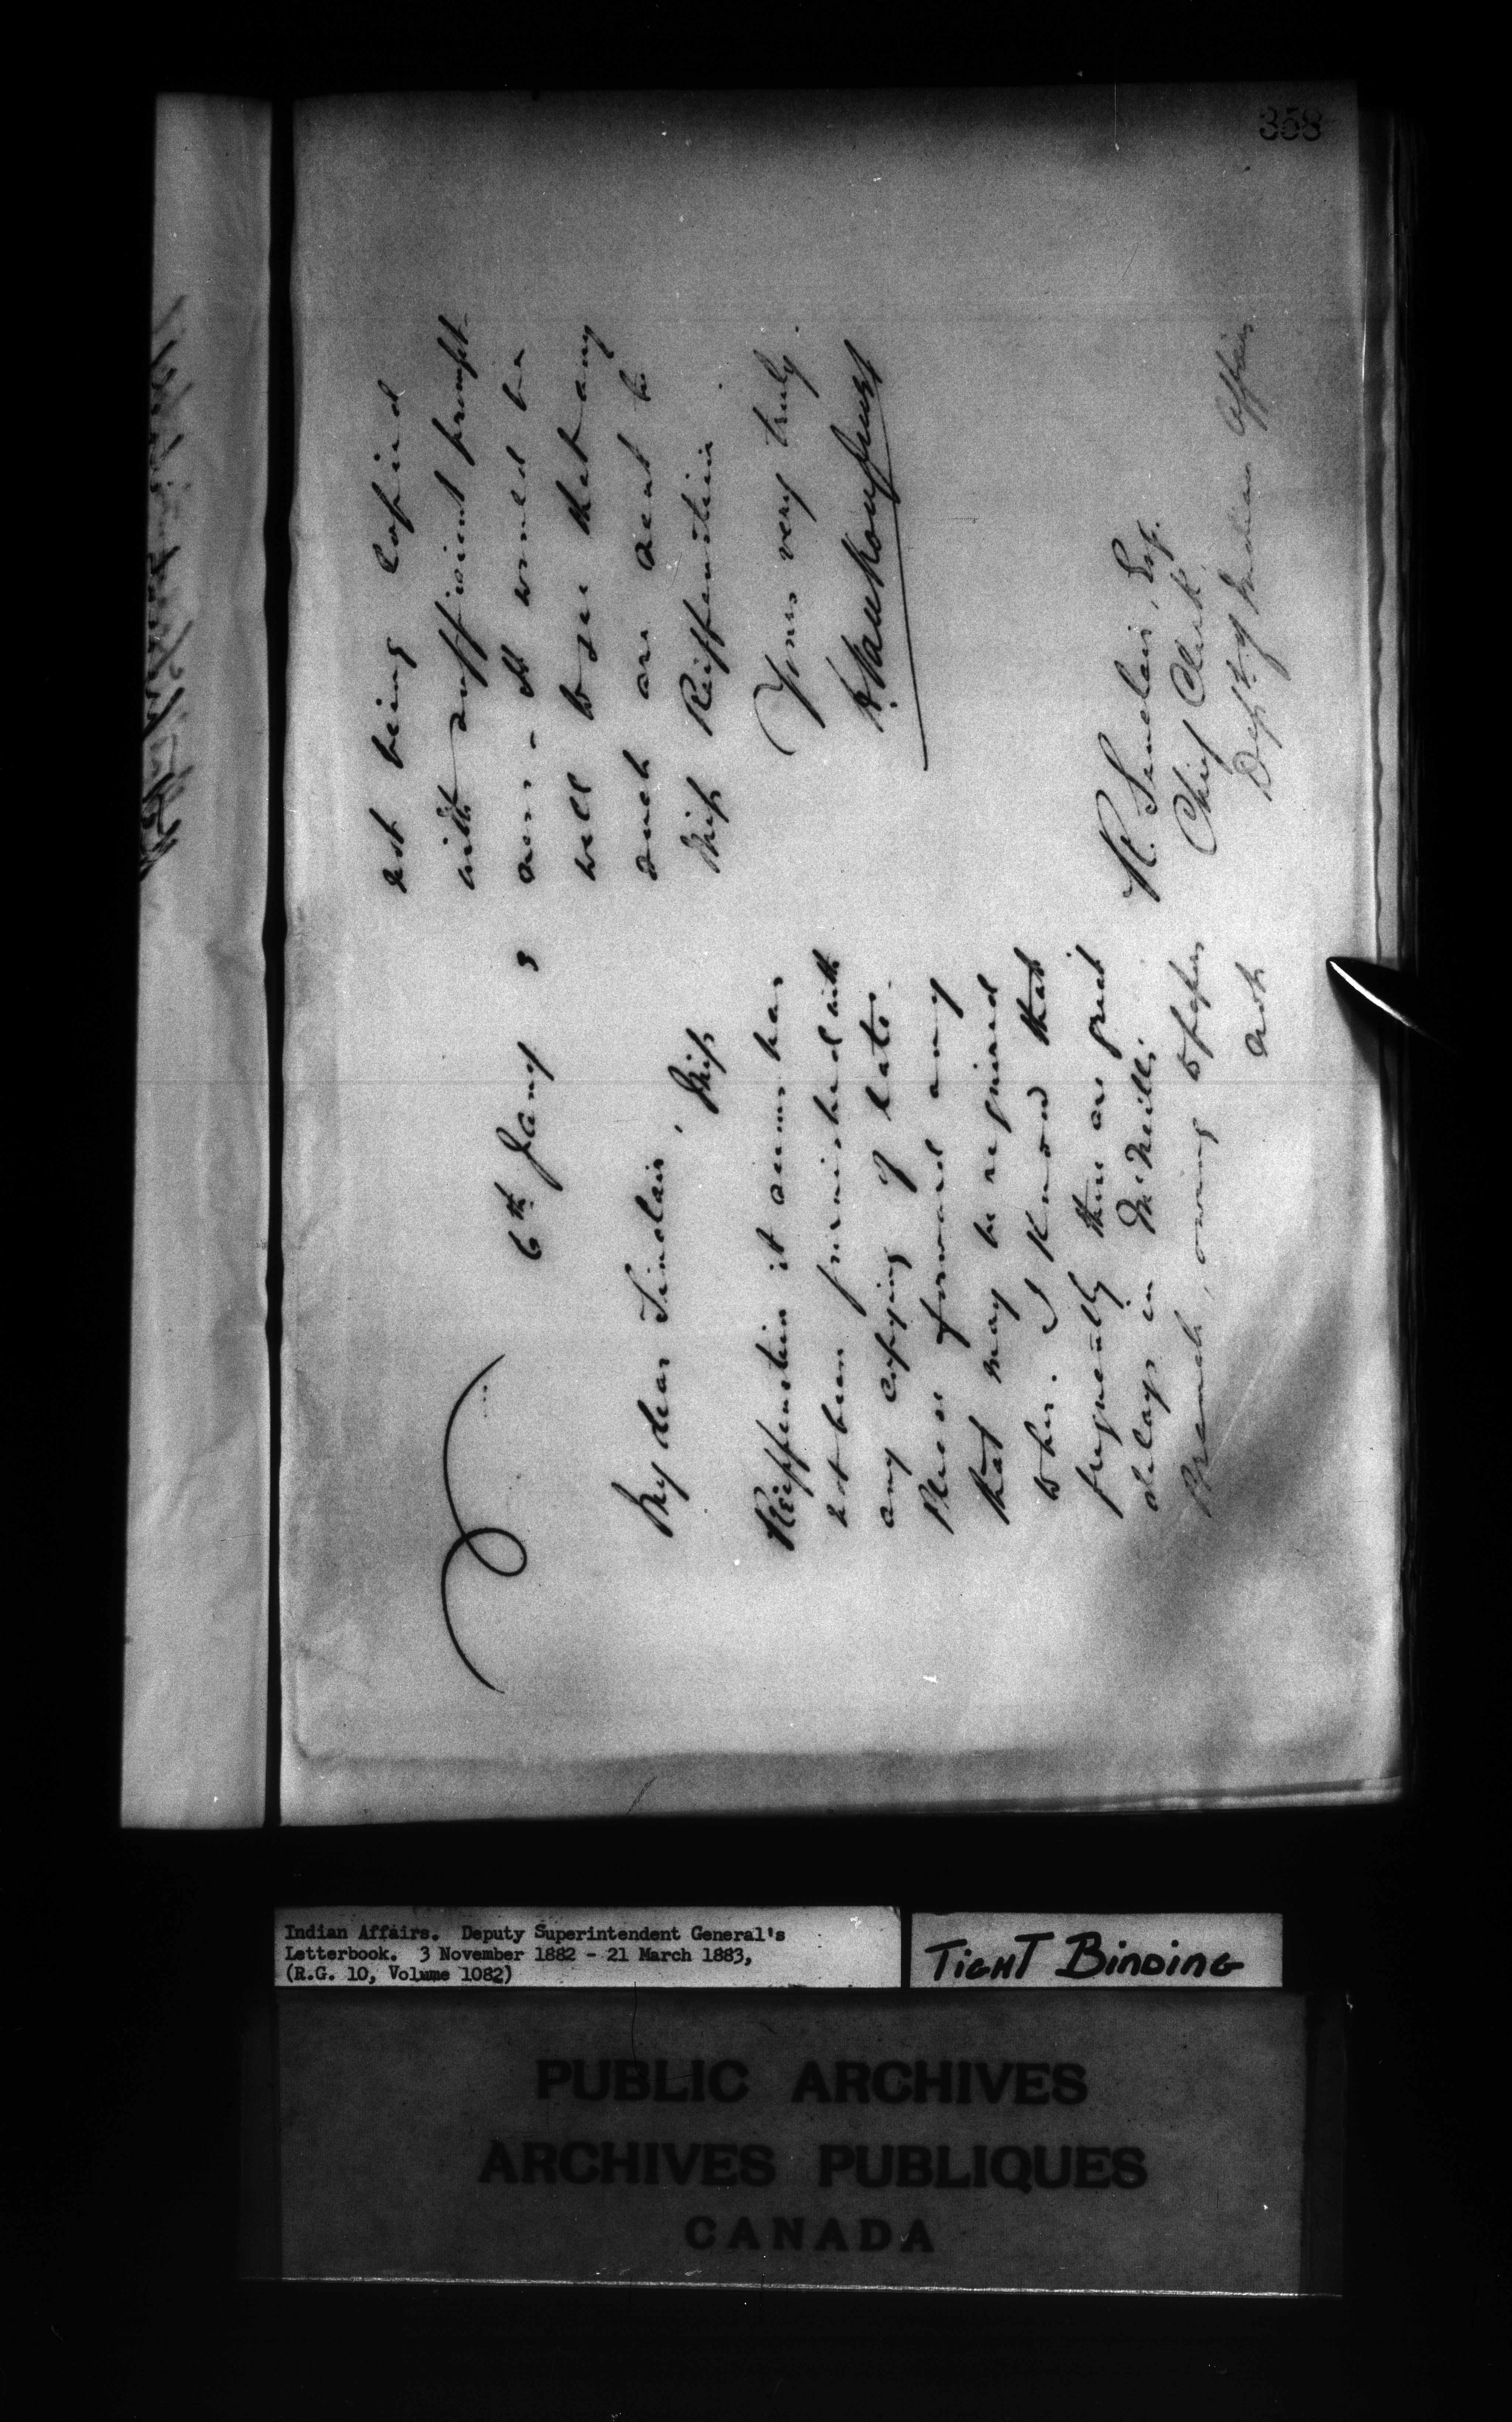 358
6th Jany 3
My dear Sinclair,
Miss
Reiffenstein it seems has
not been furnished with
any copying of late.
Please forward any
that may be required
to her. I know that
frequently there are great
delays in McNeill's
Branch, owing to papers
not
not being copied
with sufficient prompt-
ness - It would be
well to see that any
such are sent to
Miss Reiffenstein
Yours very truly.
L. Vankoughnet
R. Sinclair, Esq.
Chief Clerk
Dept. of Indian Affairs
Indian Affairs. Deputy Superintendent General's
Letterbook. 3 November 1882 - 21 March 1883,
(R.G. 10, Volume 1082)
TIGHT BINDING
PUBLIC ARCHIVES
ARCHIVES PUBLIQUES
CANADA